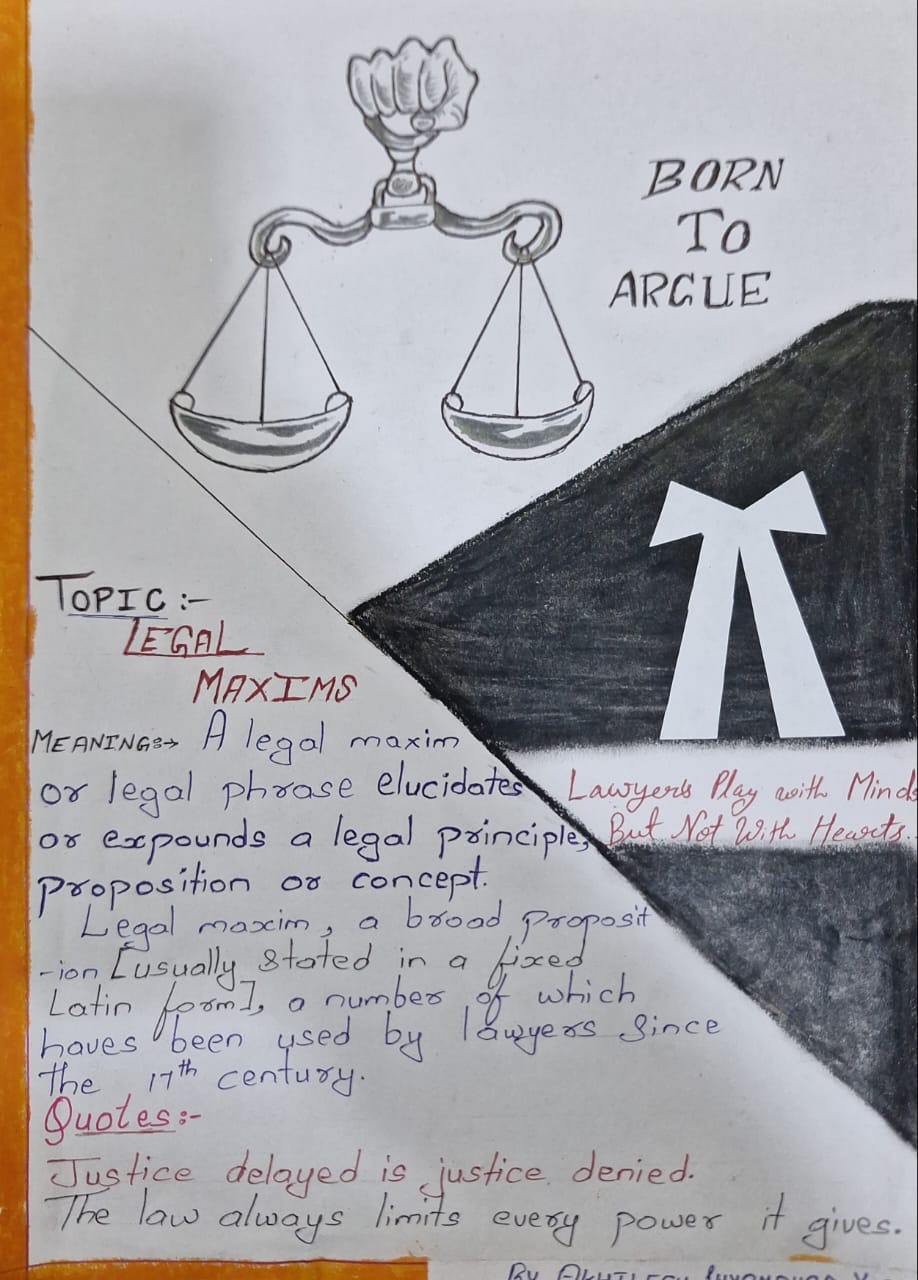 BORN
TO
ARGUE
TOPIC :-
LEGAL
MAXIMS
MEANING:→ A legal maxim
or legal phrase elucidates
or expounds a legal principle,
proposition or concept.
Legal maxim, a broad proposit
-ion [usually stated in a fixed
Latin form], a number of which
haves been used by lawyers since
the 17th century.
Quotes:-
Justice delayed is justice denied.
The law always limits every power it gives.
Lawyers Play with Minds
But Not With Hearts.
By